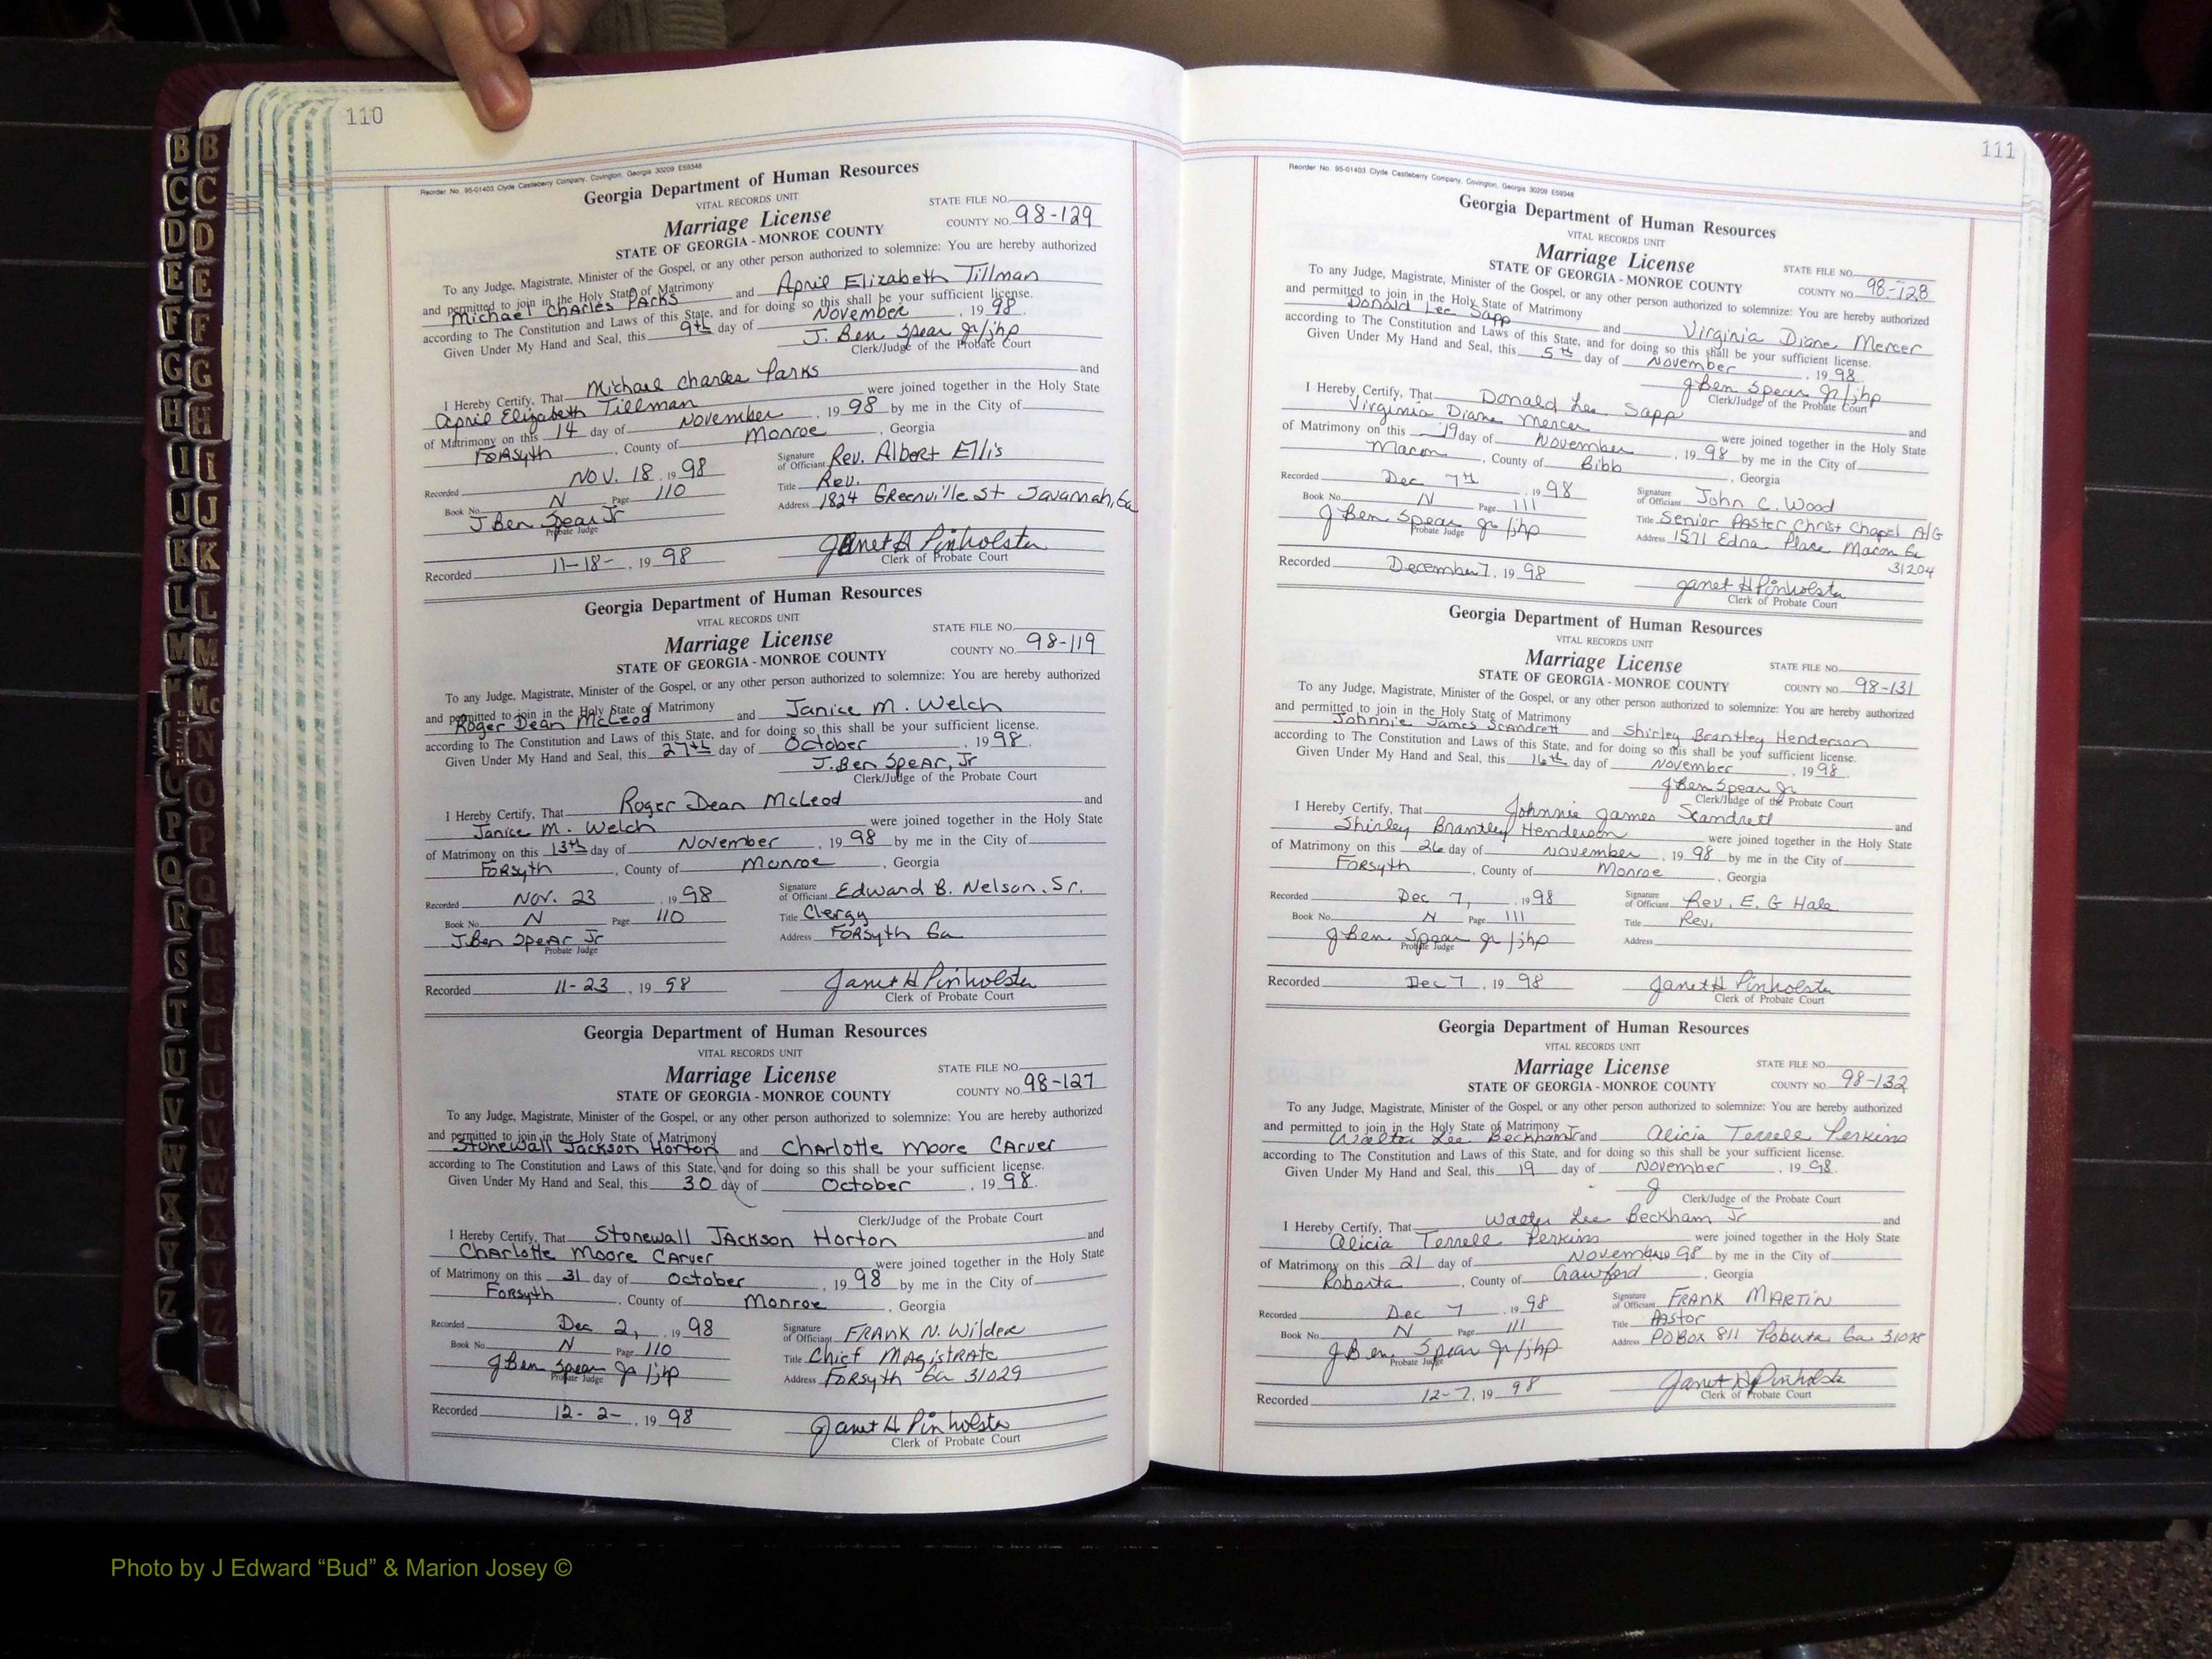 110
Reorder No. 95-01403 Clyde Castleberry Company, Covington, Georgia 30209 E59348
Georgia Department of Human Resources
VITAL RECORDS UNIT
Marriage License
STATE FILE NO.
STATE OF GEORGIA - MONROE COUNTY
COUNTY NO. 98-129
To any Judge, Magistrate, Minister of the Gospel, or any other person authorized to solemnize: You are hereby authorized
and permitted to join in the Holy State of Matrimony
Michael Charles Parks and April Elizabeth Tillman
according to The Constitution and Laws of this State, and for doing so this shall be your sufficient license.
Given Under My Hand and Seal, this 9th day of November, 1998.
J. Ben Spear Jr/jhp
Clerk/Judge of the Probate Court
I Hereby Certify, That Michael Charles Parks and
April Elizabeth Tillman were joined together in the Holy State
of Matrimony on this 14 day of November, 1998 by me in the City of
Forsyth, County of Monroe, Georgia
Recorded Nov. 18, 1998
Signature of Officiant Rev. Albert Ellis
Book No. N Page 110
Title Rev.
J Ben Spear Jr
Probate Judge
Address 1824 Greenville St Savannah, Ga
Recorded 11-18-, 1998
Janet H Pinholster
Clerk of Probate Court
Georgia Department of Human Resources
VITAL RECORDS UNIT
Marriage License
STATE FILE NO.
STATE OF GEORGIA - MONROE COUNTY
COUNTY NO. 98-119
To any Judge, Magistrate, Minister of the Gospel, or any other person authorized to solemnize: You are hereby authorized
and permitted to join in the Holy State of Matrimony
Roger Dean McLeod and Janice M. Welch
according to The Constitution and Laws of this State, and for doing so this shall be your sufficient license.
Given Under My Hand and Seal, this 27th day of October, 1998.
J. Ben Spear, Jr
Clerk/Judge of the Probate Court
I Hereby Certify, That Roger Dean McLeod and
Janice M. Welch were joined together in the Holy State
of Matrimony on this 13th day of November, 1998 by me in the City of
Forsyth, County of Monroe, Georgia
Recorded Nov. 23, 1998
Signature of Officiant Edward B. Nelson, Sr.
Book No. N Page 110
Title Clergy
J. Ben Spear Jr
Probate Judge
Address Forsyth Ga
Recorded 11-23, 1998
Janet H Pinholster
Clerk of Probate Court
Georgia Department of Human Resources
VITAL RECORDS UNIT
Marriage License
STATE FILE NO.
STATE OF GEORGIA - MONROE COUNTY
COUNTY NO. 98-127
To any Judge, Magistrate, Minister of the Gospel, or any other person authorized to solemnize: You are hereby authorized
and permitted to join in the Holy State of Matrimony
Stonewall Jackson Horton and Charlotte Moore Carver
according to The Constitution and Laws of this State, and for doing so this shall be your sufficient license.
Given Under My Hand and Seal, this 30 day of October, 1998.
Clerk/Judge of the Probate Court
I Hereby Certify, That Stonewall Jackson Horton and
Charlotte Moore Carver were joined together in the Holy State
of Matrimony on this 31 day of October, 1998 by me in the City of
Forsyth, County of Monroe, Georgia
Recorded Dec 2, 1998
Signature of Officiant Frank N. Wilder
Book No. N Page 110
Title Chief Magistrate
J Ben Spear Jr/jhp
Probate Judge
Address Forsyth Ga 31029
Recorded 12-2-, 1998
Janet H Pinholster
Clerk of Probate Court
111
Reorder No. 95-01403 Clyde Castleberry Company, Covington, Georgia 30209 E59348
Georgia Department of Human Resources
VITAL RECORDS UNIT
Marriage License
STATE FILE NO.
STATE OF GEORGIA - MONROE COUNTY
COUNTY NO. 98-128
To any Judge, Magistrate, Minister of the Gospel, or any other person authorized to solemnize: You are hereby authorized
and permitted to join in the Holy State of Matrimony
Donald Lee Sapp and Virginia Diane Mercer
according to The Constitution and Laws of this State, and for doing so this shall be your sufficient license.
Given Under My Hand and Seal, this 5th day of November, 1998.
J Ben Spear Jr/jhp
Clerk/Judge of the Probate Court
I Hereby Certify, That Donald Lee Sapp and
Virginia Diane Mercer were joined together in the Holy State
of Matrimony on this 19 day of November, 1998 by me in the City of
Macon, County of Bibb, Georgia
Recorded Dec 7th, 1998
Signature of Officiant John C. Wood
Book No. N Page 111
Title Senior Paster Christ Chapel A/G
J Ben Spear Jr/jhp
Probate Judge
Address 1571 Edna Place Macon Ga
31204
Recorded December 7, 1998
Janet H Pinholster
Clerk of Probate Court
Georgia Department of Human Resources
VITAL RECORDS UNIT
Marriage License
STATE FILE NO.
STATE OF GEORGIA - MONROE COUNTY
COUNTY NO. 98-131
To any Judge, Magistrate, Minister of the Gospel, or any other person authorized to solemnize: You are hereby authorized
and permitted to join in the Holy State of Matrimony
Johnnie James Scandrett and Shirley Brantley Henderson
according to The Constitution and Laws of this State, and for doing so this shall be your sufficient license.
Given Under My Hand and Seal, this 16th day of November, 1998.
J Ben Spear Jr
Clerk/Judge of the Probate Court
I Hereby Certify, That Johnnie James Scandrett and
Shirley Brantley Henderson were joined together in the Holy State
of Matrimony on this 26 day of November, 1998 by me in the City of
Forsyth, County of Monroe, Georgia
Recorded Dec 7, 1998
Signature of Officiant Rev. E. G Hale
Book No. N Page 111
Title Rev.
J Ben Spear Jr/jhp
Probate Judge
Address
Recorded Dec 7, 1998
Janet H Pinholster
Clerk of Probate Court
Georgia Department of Human Resources
VITAL RECORDS UNIT
Marriage License
STATE FILE NO.
STATE OF GEORGIA - MONROE COUNTY
COUNTY NO. 98-132
To any Judge, Magistrate, Minister of the Gospel, or any other person authorized to solemnize: You are hereby authorized
and permitted to join in the Holy State of Matrimony
Walter Lee Beckham Jr and Alicia Terrele Perkins
according to The Constitution and Laws of this State, and for doing so this shall be your sufficient license.
Given Under My Hand and Seal, this 19 day of November, 1998.
J
Clerk/Judge of the Probate Court
I Hereby Certify, That Walter Lee Beckham Jr and
Alicia Terrell Perkins were joined together in the Holy State
of Matrimony on this 21 day of November 1998 by me in the City of
Roberta, County of Crawford, Georgia
Recorded Dec 7, 1998
Signature of Officiant Frank Martin
Book No. N Page 111
Title Pastor
J Ben Spear Jr/jhp
Probate Judge
Address PO Box 811 Roberta Ga 31078
Recorded 12-7, 1998
Janet H Pinholster
Clerk of Probate Court
Photo by J Edward “Bud” & Marion Josey ©